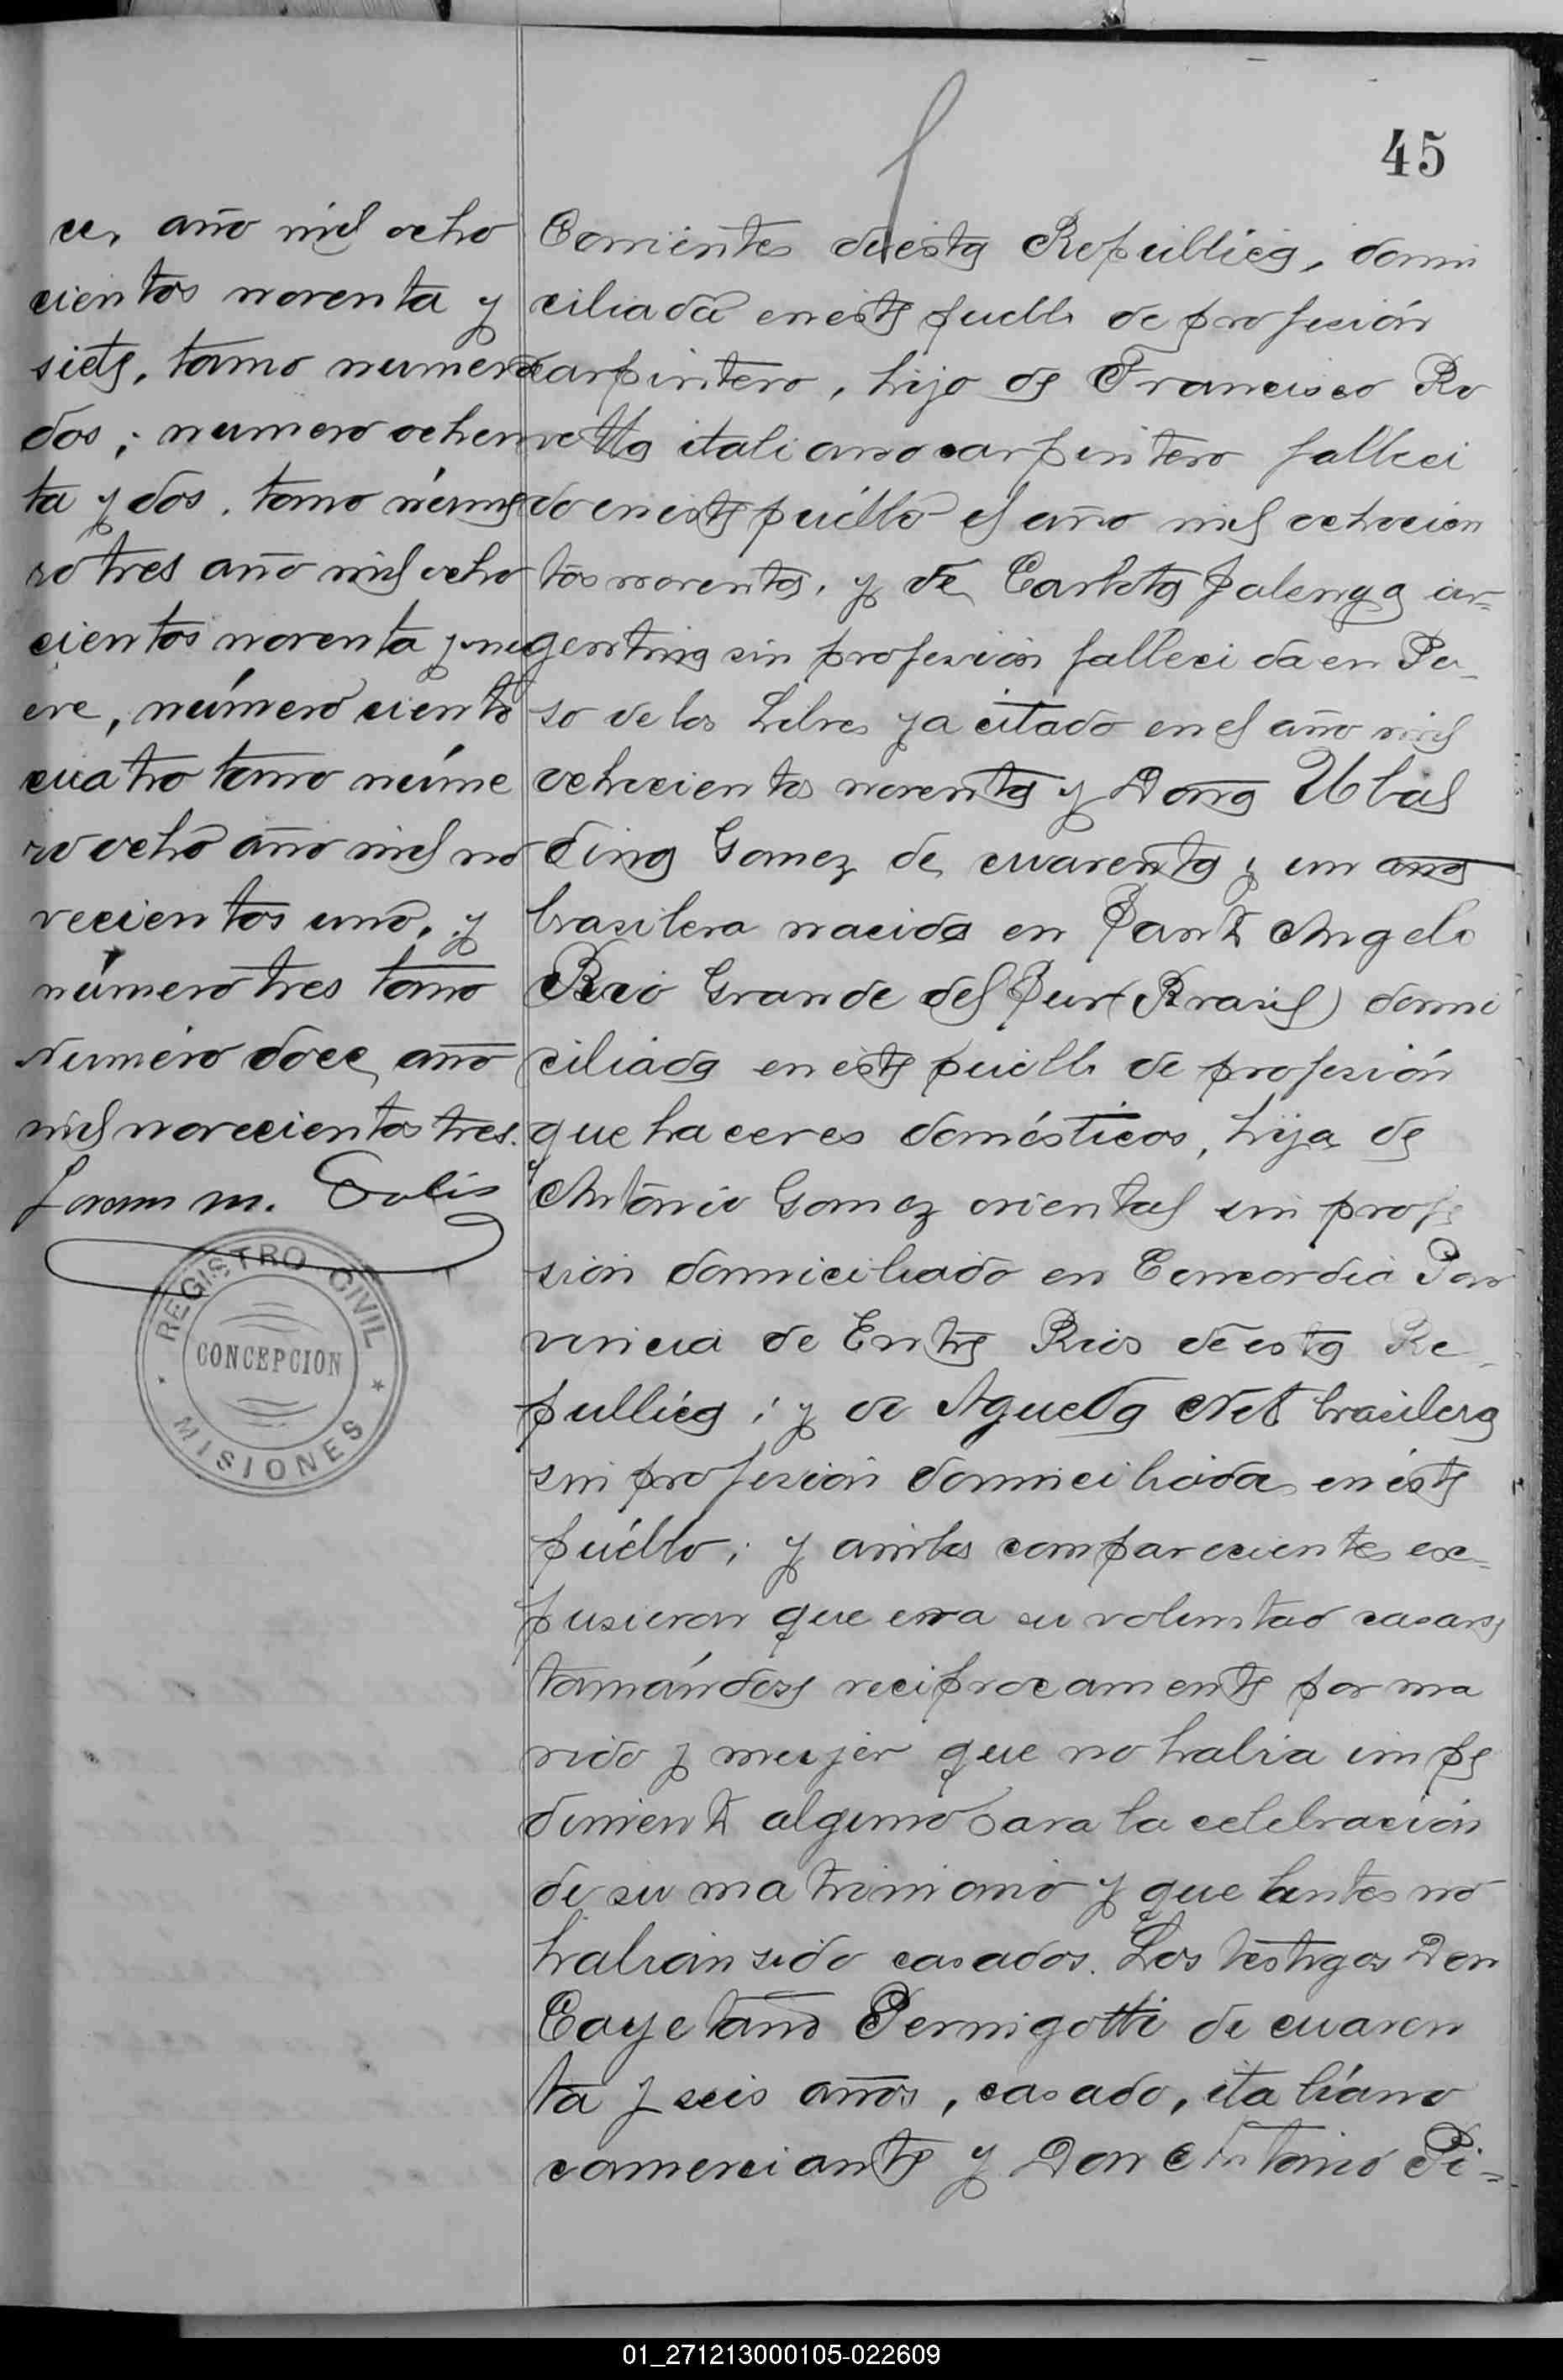 45
ce, año mil ocho
cientos noventa y
siete, tomo numero
dos; numero ochen
ta y dos, tomo núme
ro tres año mil ocho
cientos noventa y nu
eve, número ciento
cuatro tomo núme
ro ocho año mil no
vecientos uno, y
número tres tomo
Numero doce, año
mil novecientos tres.
m. Solis
REGISTRO CIVIL
CONCEPCION
MISIONES
Corrientes de esta República, domi
ciliada en este pueblo de profesión
carpintero, hijo de Francisco Ro
vetta italiano carpintero falleci
do en este pueblo el año mil ochocien
tos noventa, y de Carlota ar-
gentina sin profesion fallecida en Pa-
so de los Libres ya citado en el año mil
ochocientos noventa y Dona Ubal
dina Gomez de cuarenta y un años
brasilera nacida en Santo Angelo
Rio Grande del Sur (Brasil) domi
ciliada en este pueblo de profesión
que haceres domésticos, hija de
Antonio Gomez oriental sin profe
sion domiciliado en Concordia Pro
vincia de Entre Rios de esta Re-
publica; y de Agueda Net brasilera
sin profesion domiciliada en éste
pueblo; y ambos comparecientes ex-
pusieron que era su voluntad casarse
tomándose reciprocamente por ma
rido y mujer que no habia impe
dimento alguno para la celebracion
de su matrimonio y que antes no
habian sido casados. Los testigos Don
Cayetano Pernigotti de cuaren
ta y seis años, casado, italiano
comerciante y Don Antonio Pi-
01_271213000105-022609